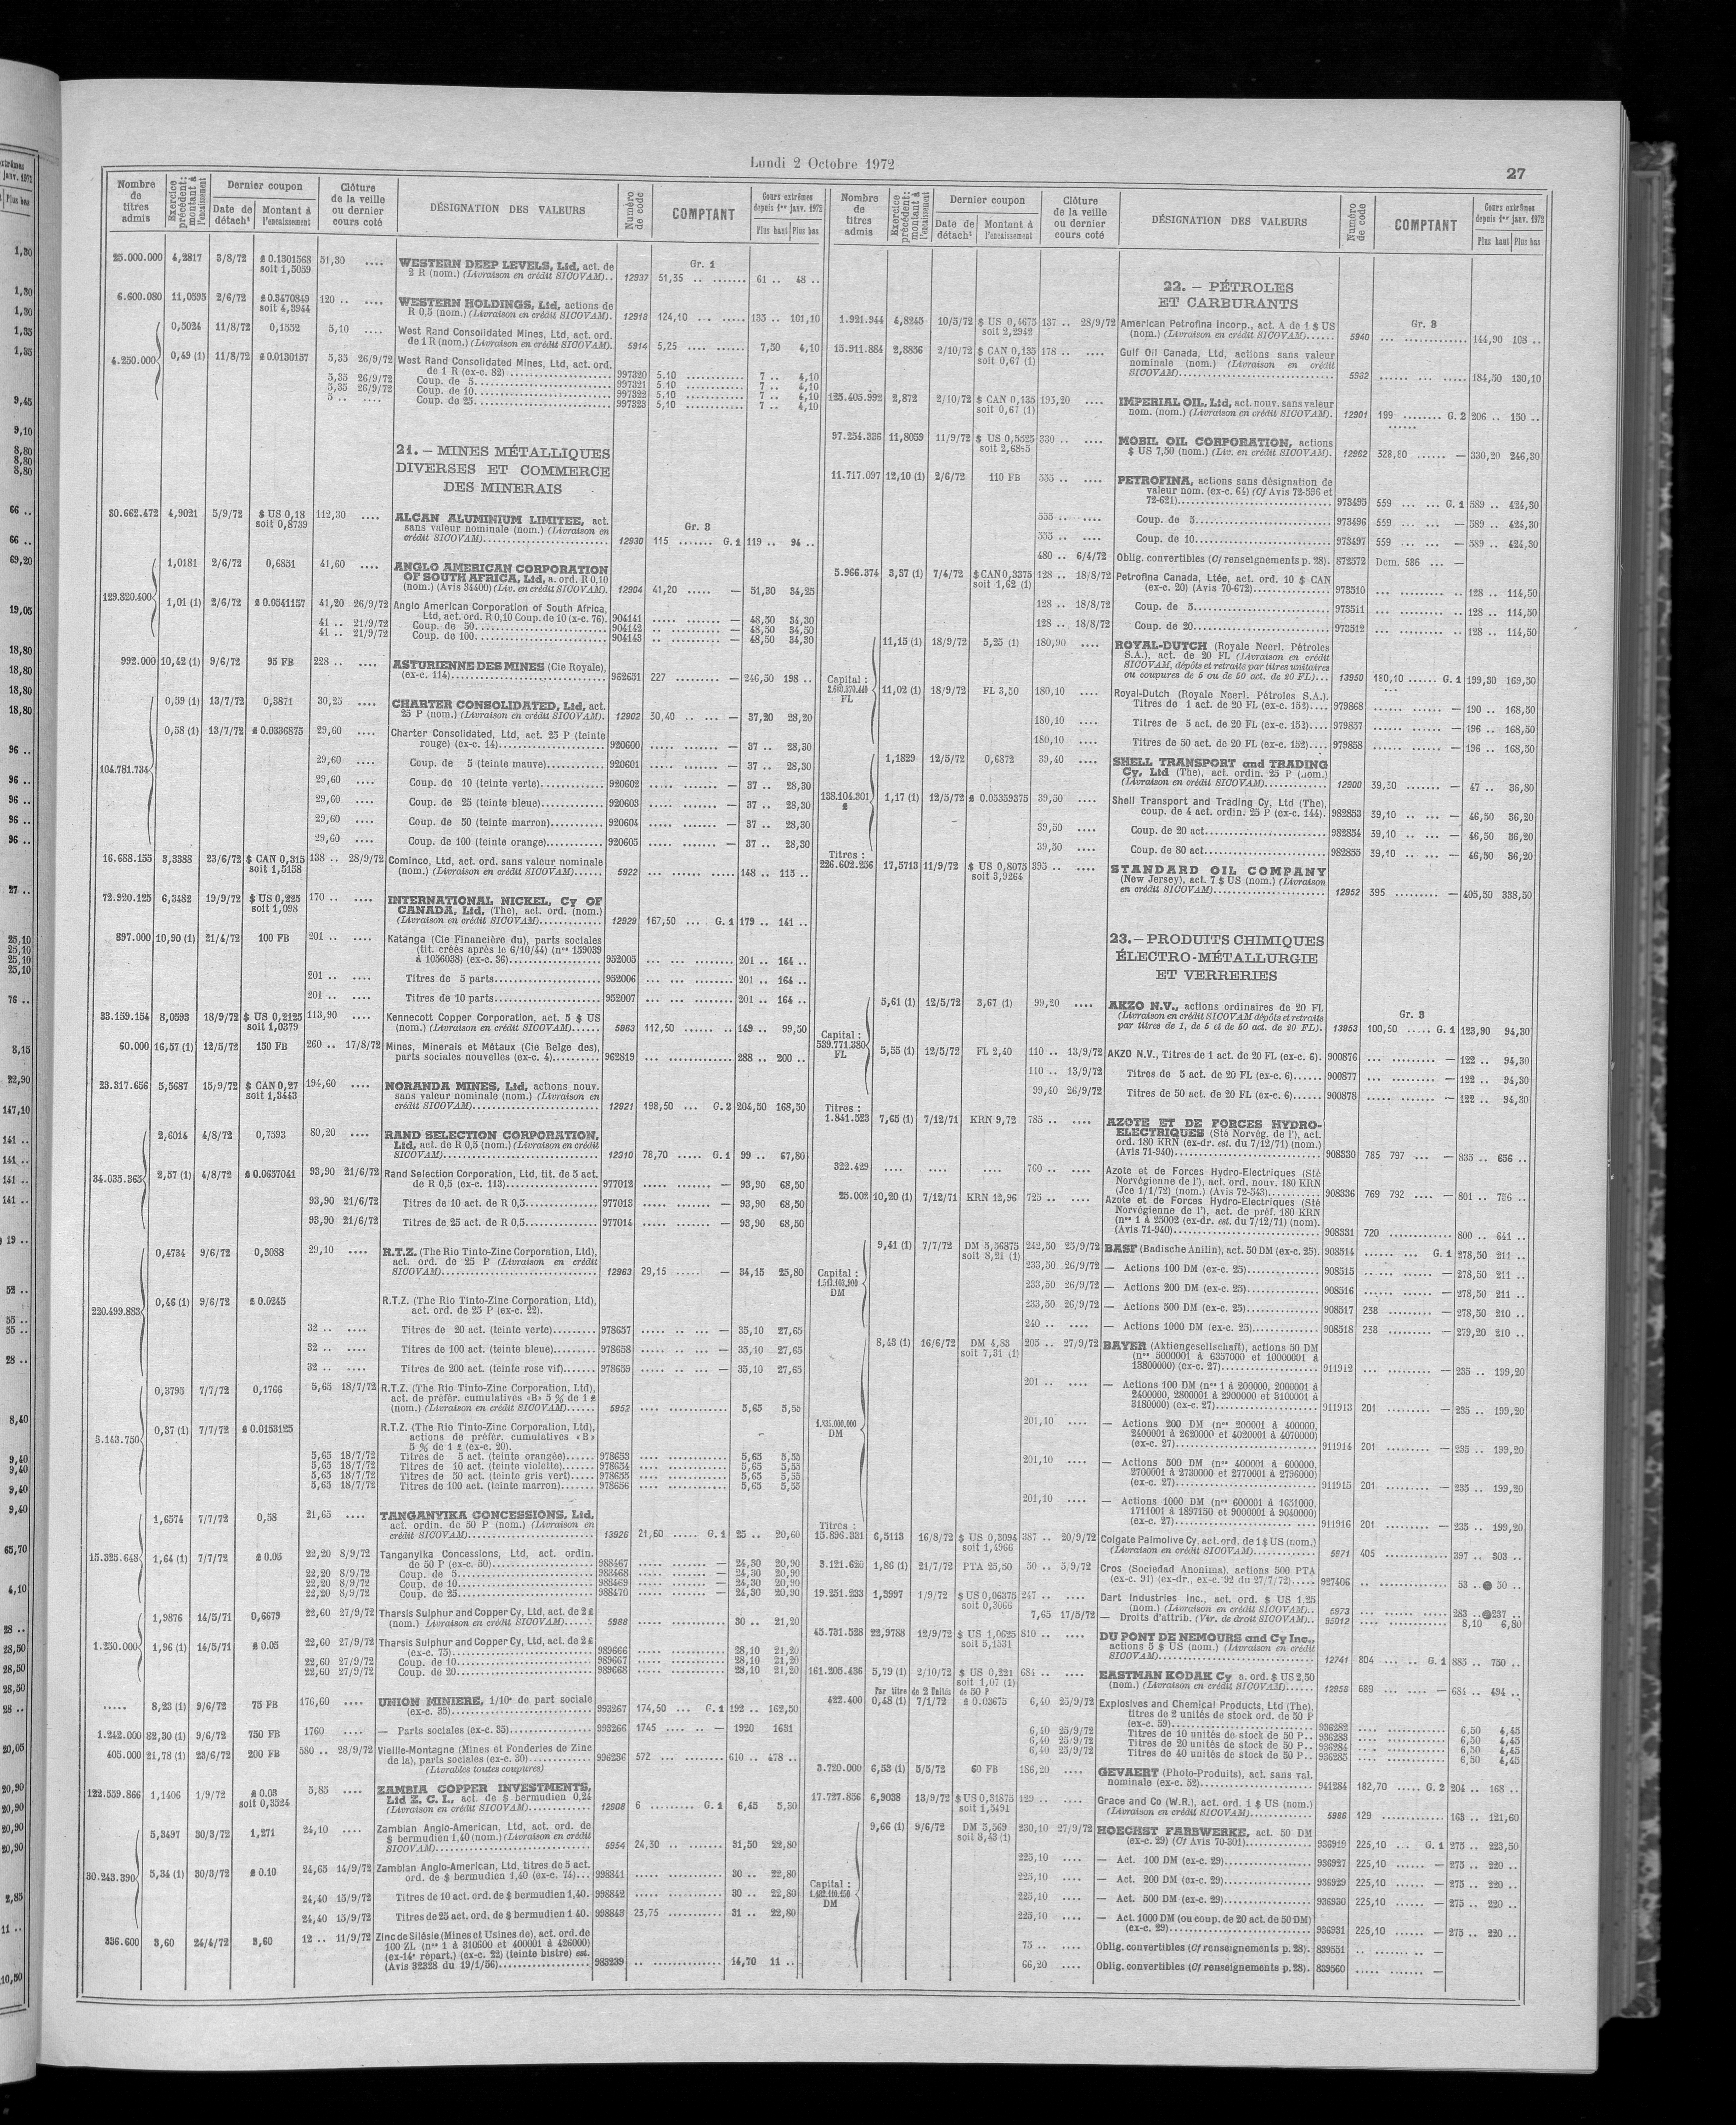 Lundi 2 Octobre 1972
27
Nombre de titres admis
Exercice précédent: montant à l'encaissement
Dernier coupon
Date de détach¹
Montant à l'encaissement
Clôture de la veille ou dernier cours coté
DÉSIGNATION DES VALEURS
Numéro de code
COMPTANT
Cours extrêmes depuis 1er janv. 1972
Plus haut Plus bas
Gr. 1
25.000.000 4,2817 3/8/72 soit 1,5059 51,30 .... WESTERN DEEP LEVELS, Ltd, act. de
2 R (nom.) (Livraison en crédit SICOVAM).. 12937 51,35 .. ....... 61 .. 48 ..
6.600.080 11,0595 2/6/72 soit 4,3944 120 .. .... WESTERN HOLDINGS, Ltd, actions de
R 0,5 (nom.) (Livraison en crédit SICOVAM). 12918 124,10 ... ..... 135 .. 101,10
4.250.000
0,5024 11/8/72 0,1552 5,10 .... West Rand Consolidated Mines, Ltd, act. ord.
de 1 R (nom.) (Livraison en crédit SICOVAM). 5914 5,25 .... ....... 7,50 4,10
0,49 (1) 11/8/72 £ 0.0130157 5,35 26/9/72 West Rand Consolidated Mines, Ltd, act. ord.
de 1 R (ex-c. 82) 997320 5,10 ............ 7 .. 4,10
5,35 26/9/72 Coup. de 5 997321 5,10 ............ 7 .. 4,10
5,35 26/9/72 Coup. de 10 997322 5,10 ............ 7 .. 4,10
5 .. .... Coup. de 25 997323 5,10 ............ 7 .. 4,10
21. – MINES MÉTALLIQUES
DIVERSES ET COMMERCE
DES MINERAIS
Gr. 3
80.662.472 4,9021 5/9/72 $ US 0,18 soit 0,8739 112,30 .... ALCAN ALUMINIUM LIMITEE, act.
sans valeur nominale (nom.) (Livraison en
crédit SICOVAM) 12930 115 ....... G. 1 119 .. 94 ..
129.820.400
1,0181 2/6/72 0,6851 41,60 .... ANGLO AMERICAN CORPORATION
OF SOUTH AFRICA, Ltd, a. ord. R 0,10
(nom.) (Avis 34400) (Liv. en crédit SICOVAM). 12904 41,20 ..... — 51,30 34,25
1,01 (1) 2/6/72 £ 0.0541157 41,20 26/9/72 Anglo American Corporation of South Africa,
Ltd, act. ord. R 0,10 Coup. de 10 (x-c. 76). 904141 ..... ....... — 48,50 34,30
41 .. 21/9/72 Coup. de 50 904142 .. .......... — 48,50 34,50
41 .. 21/9/72 Coup. de 100 904143 ..... ....... — 48,50 34,30
992.000 10,42 (1) 9/6/72 95 FB 228 .. .... ASTURIENNE DES MINES (Cie Royale),
(ex-c. 114) 962651 227 ......... — 246,50 198 ..
104.781.734
0,59 (1) 13/7/72 0,3871 30,25 .... CHARTER CONSOLIDATED, Ltd, act.
25 P (nom.) (Livraison en crédit SICOVAM). 12902 30,40 .. ... — 37,20 28,20
0,58 (1) 13/7/72 £ 0.0336875 29,60 .... Charter Consolidated, Ltd, act. 25 P (teinte
rouge) (ex-c. 14) 920600 ..... ....... — 37 .. 28,30
29,60 .... Coup. de 5 (teinte mauve) 920601 ..... ....... — 37 .. 28,30
29,60 .... Coup. de 10 (teinte verte) 920602 ..... ....... — 37 .. 28,30
29,60 .... Coup. de 25 (teinte bleue) 920603 ..... ....... — 37 .. 28,30
29,60 .... Coup. de 50 (teinte marron) 920604 ..... ....... — 37 .. 28,30
29,60 .... Coup. de 100 (teinte orange) 920605 ..... ....... — 37 .. 28,30
16.688.155 3,3388 23/6/72 $ CAN 0,315 soit 1,5158 138 .. 28/9/72 Cominco, Ltd, act. ord. sans valeur nominale
(nom.) (Livraison en crédit SICOVAM) 5922 ... ... ...... 148 .. 115 ..
72.920.125 6,3482 19/9/72 $ US 0,225 soit 1,098 170 .. .... INTERNATIONAL NICKEL, Cy OF
CANADA, Ltd, (The), act. ord. (nom.)
(Livraison en crédit SICOVAM) 12929 167,50 ... G. 1 179 .. 141 ..
897.000 10,90 (1) 21/4/72 100 FB 201 .. .... Katanga (Cie Financière du), parts sociales
(tit. créés après le 6/10/44) (nos 159039
à 1056038) (ex-c. 36) 952005 ... ... ........ 201 .. 164 ..
201 .. .... Titres de 5 parts 952006 ... ... ........ 201 .. 164 ..
201 .. .... Titres de 10 parts 952007 ... ... ........ 201 .. 164 ..
33.159.154 8,0593 18/9/72 $ US 0,2125 soit 1,0379 113,90 .... Kennecott Copper Corporation, act. 5 $ US
(nom.) (Livraison en crédit SICOVAM) 5963 112,50 ...... .. 149 .. 99,50
60.000 16,57 (1) 12/5/72 150 FB 260 .. 17/8/72 Mines, Minerais et Métaux (Cie Belge des),
parts sociales nouvelles (ex-c. 4) 962819 ... ............ 288 .. 200 ..
23.317.656 5,5687 15/9/72 $ CAN 0,27 soit 1,3443 194,60 .... NORANDA MINES, Ltd, actions nouv.
sans valeur nominale (nom.) (Livraison en
crédit SICOVAM) 12921 198,50 ... G. 2 204,50 168,50
34.035.365
2,6014 4/8/72 0,7593 80,20 .... RAND SELECTION CORPORATION,
Ltd, act. de R 0,5 (nom.) (Livraison en crédit
SICOVAM) 12310 78,70 ..... G. 1 99 .. 67,80
2,57 (1) 4/8/72 £ 0.0657041 93,90 21/6/72 Rand Selection Corporation, Ltd, tit. de 5 act.
de R 0,5 (ex-c. 113) 977012 ..... ....... — 93,90 68,50
93,90 21/6/72 Titres de 10 act. de R 0,5 977013 ..... ....... — 93,90 68,50
93,90 21/6/72 Titres de 25 act. de R 0,5 977014 ..... ....... — 93,90 68,50
220.499.883
0,4734 9/6/72 0,3088 29,10 .... R.T.Z. (The Rio Tinto-Zinc Corporation, Ltd),
act. ord. de 25 P (Livraison en crédit
SICOVAM) 12963 29,15 ..... — 34,15 25,80
0,46 (1) 9/6/72 £ 0.0245 R.T.Z. (The Rio Tinto-Zinc Corporation, Ltd),
act. ord. de 25 P (ex-c. 22).
32 .. .... Titres de 20 act. (teinte verte) 978657 ..... .. ... — 35,10 27,65
32 .. .... Titres de 100 act. (teinte bleue) 978658 ..... .. ... — 35,10 27,65
32 .. .... Titres de 200 act. (teinte rose vif) 978659 ..... .. ... — 35,10 27,65
3.143.750
0,3795 7/7/72 0,1766 5,65 18/7/72 R.T.Z. (The Rio Tinto-Zinc Corporation, Ltd),
act. de préfér. cumulatives «B» 5 % de 1 £
(nom.) (Livraison en crédit SICOVAM) 5952 .... ............ 5,65 5,55
0,37 (1) 7/7/72 £ 0.0153125 R.T.Z. (The Rio Tinto-Zinc Corporation, Ltd),
actions de préfér. cumulatives «B»
5 % de 1 £ (ex-c. 20).
5,65 18/7/72 Titres de 5 act. (teinte orangée) 978653 .... ............ 5,65 5,55
5,65 18/7/72 Titres de 10 act. (teinte violette) 978654 .... ............ 5,65 5,55
5,65 18/7/72 Titres de 50 act. (teinte gris vert) 978655 .... ............ 5,65 5,55
5,65 18/7/72 Titres de 100 act. (teinte marron) 978656 .... ............ 5,65 5,55
15.325.648
1,6574 7/7/72 0,58 21,65 .... TANGANYIKA CONCESSIONS, Ltd,
act. ordin. de 50 P (nom.) (Livraison en
crédit SICOVAM) 13926 21,60 ..... G. 1 25 .. 20,60
1,64 (1) 7/7/72 £ 0.05 22,20 8/9/72 Tanganyika Concessions, Ltd, act. ordin.
de 50 P (ex-c. 50) 988467 ..... ....... — 24,30 20,90
22,20 8/9/72 Coup. de 5 988468 ..... ....... — 24,30 20,90
22,20 8/9/72 Coup. de 10 988469 ..... ....... — 24,30 20,90
22,20 8/9/72 Coup. de 25 988470 ..... ....... — 24,30 20,90
1.250.000
1,9876 14/5/71 0,6679 22,60 27/9/72 Tharsis Sulphur and Copper Cy, Ltd, act. de 2 £
(nom.) (Livraison en crédit SICOVAM) 5988 ..... ........... 30 .. 21,20
1,96 (1) 14/5/71 £ 0.05 22,60 27/9/72 Tharsis Sulphur and Copper Cy, Ltd, act. de 2 £
(ex-c. 75) 989666 ..... ........... 28,10 21,20
22,60 27/9/72 Coup. de 10 989667 ..... ........... 28,10 21,20
22,60 27/9/72 Coup. de 20 989668 ..... ........... 28,10 21,20
..... 8,23 (1) 9/6/72 75 FB 176,60 .... UNION MINIERE, 1/10e de part sociale
(ex-c. 35) 993267 174,50 ... G. 1 192 .. 162,50
1.242.000 82,30 (1) 9/6/72 750 FB 1760 .... — Parts sociales (ex-c. 35) 993266 1745 .... .. — 1920 1631
405.000 21,78 (1) 23/6/72 200 FB 580 .. 28/9/72 Vieille-Montagne (Mines et Fonderies de Zinc
de la), parts sociales (ex-c. 30) 996236 572 ... ......... 610 .. 478 ..
(Livrables toutes coupures)
122.559.866 1,1406 1/9/72 £ 0.03 soit 0,3524 5,85 .... ZAMBIA COPPER INVESTMENTS,
Ltd Z. C. I., act. de $ bermudien 0,24
(Livraison en crédit SICOVAM) 12908 6 .......... G. 1 6,45 5,30
30.243.390
5,3497 30/3/72 1,271 24,10 .... Zambian Anglo-American, Ltd, act. ord. de
$ bermudien 1,40 (nom.) (Livraison en crédit
SICOVAM) 5954 24,30 .. ....... 31,50 22,80
5,34 (1) 30/3/72 £ 0.10 24,65 14/9/72 Zambian Anglo-American, Ltd, titres de 5 act.
ord. de $ bermudien 1,40 (ex-c. 74) 998841 ..... ........... 30 .. 22,80
24,40 15/9/72 Titres de 10 act. ord. de $ bermudien 1,40. 998842 ..... ........... 30 .. 22,80
24,40 15/9/72 Titres de 25 act. ord. de $ bermudien 1 40. 998843 23,75 ........... 31 .. 22,80
336.600 3,60 24/4/72 3,60 12 .. 11/9/72 Zinc de Silésie (Mines et Usines de), act. ord. de
100 ZL (nos 1 à 310600 et 400001 à 426000)
(ex-14e répart.) (ex-c. 22) (teinte bistre) est.
(Avis 32328 du 19/1/56) 983239 .. ............. 14,70 11 ..
Nombre de titres admis
Exercice précédent: montant à l'encaissement
Dernier coupon
Date de détach¹
Montant à l'encaissement
Clôture de la veille ou dernier cours coté
DÉSIGNATION DES VALEURS
Numéro de code
COMPTANT
Cours extrêmes depuis 1er janv. 1972
Plus haut Plus bas
22. – PÉTROLES
ET CARBURANTS
Gr. 3
1.921.944 4,8245 10/5/72 $ US 0,4675 soit 2,2942 137 .. 28/9/72 American Petrofina Incorp., act. A de 1 $ US
(nom.) (Livraison en crédit SICOVAM) 5940 ... ............. 144,90 108 ..
15.911.884 2,8856 2/10/72 $ CAN 0,135 soit 0,67 (1) 178 .. .... Gulf Oil Canada, Ltd, actions sans valeur
nominale (nom.) (Livraison en crédit
SICOVAM) ....... ... ..... 184,50 130,10
125.405.992 2,872 2/10/72 $ CAN 0,135 soit 0,67 (1) 195,20 .... IMPERIAL OIL, Ltd, act. nouv. sans valeur
nom. (nom.) (Livraison en crédit SICOVAM). 12901 199 ........ G. 2 206 .. 150 ..
97.254.336 11,8059 11/9/72 $ US 0,5525 330 .. .... MOBIL OIL CORPORATION, actions
$ US 7,50 (nom.) (Liv. en crédit SICOVAM). 12962 328,80 ...... — 330,20 246,30
11.717.097 12,10 (1) 2/6/72 110 FB 555 .. .... PETROFINA, actions sans désignation de
valeur nom. (ex-c. 64) (Cf Avis 72-596 et
72-621) 973495 559 ... ... G. 1 589 .. 424,30
555 .. .... Coup. de 5 973496 559 ... ... — 589 .. 424,30
555 .. .... Coup. de 10 973497 559 ... ... — 589 .. 424,30
480 .. 6/4/72 Oblig. convertibles (Cf renseignements p. 28). 872572 Dem. 586 ... —
5.966.374 3,37 (1) 7/4/72 $ CAN 0,3375 soit 1,62 (1) 128 .. 18/8/72 Petrofina Canada, Ltée, act. ord. 10 $ CAN
(ex-c. 20) (Avis 70-672) 973510 ... ......... — 128 .. 114,50
128 .. 18/8/72 Coup. de 5 973511 ... ......... — 128 .. 114,50
128 .. 18/8/72 Coup. de 20 973512 ... ......... — 128 .. 114,50
Capital : 2.680.370.440 FL
11,15 (1) 18/9/72 5,25 (1) 180,90 .... ROYAL-DUTCH (Royale Neerl. Pétroles
S.A.), act. de 20 FL (Livraison en crédit
SICOVAM, dépôts et retraits par titres unitaires
ou coupures de 5 ou de 50 act. de 20 FL) 13950 180,10 ...... G. 1 199,30 169,50
11,02 (1) 18/9/72 FL 3,50 180,10 .... Royal-Dutch (Royale Neerl. Pétroles S.A.).
Titres de 1 act. de 20 FL (ex-c. 152) 979868 ... ... ...... — 190 .. 168,50
180,10 .... Titres de 5 act. de 20 FL (ex-c. 152) 979857 ... ... ...... — 196 .. 168,50
180,10 .... Titres de 50 act. de 20 FL (ex-c. 152) 979858 ... ... ...... — 196 .. 168,50
138.104.301 £
1,1829 12/5/72 0,6872 39,40 .... SHELL TRANSPORT and TRADING
Cy, Ltd (The), act. ordin. 25 P (nom.)
(Livraison en crédit SICOVAM) 12900 39,50 ....... — 47 .. 36,80
1,17 (1) 12/5/72 £ 0.05359375 39,50 .... Shell Transport and Trading Cy, Ltd (The),
coup. de 4 act. ordin. 25 P (ex-c. 144). 982853 39,10 .. ... — 46,50 36,20
39,50 .... Coup. de 20 act 982854 39,10 .. ... — 46,50 36,20
39,50 .... Coup. de 80 act 982855 39,10 .. ... — 46,50 36,20
Titres :
226.602.256 17,5713 11/9/72 $ US 0,8075 soit 3,9264 395 .. .... STANDARD OIL COMPANY
(New Jersey), act. 7 $ US (nom.) (Livraison
en crédit SICOVAM) 12952 395 ......... — 405,50 338,50
23. – PRODUITS CHIMIQUES
ÉLECTRO-MÉTALLURGIE
ET VERRERIES
Gr. 3
Capital : 539.771.380 FL
5,61 (1) 12/5/72 3,67 (1) 99,20 .... AKZO N.V., actions ordinaires de 20 FL
(Livraison en crédit SICOVAM dépôts et retraits
par titres de 1, de 5 et de 50 act. de 20 FL). 13953 100,50 ..... G. 1 123,90 94,30
5,55 (1) 12/5/72 FL 2,40 110 .. 13/9/72 AKZO N.V., Titres de 1 act. de 20 FL (ex-c. 6). 900876 ... ......... — 122 .. 94,30
110 .. 13/9/72 Titres de 5 act. de 20 FL (ex-c. 6) 900877 ... ......... — 122 .. 94,30
99,40 26/9/72 Titres de 50 act. de 20 FL (ex-c. 6) 900878 ... ......... — 122 .. 94,30
Titres :
1.841.523 7,65 (1) 7/12/71 KRN 9,72 785 .. .... AZOTE ET DE FORCES HYDRO-
ELECTRIQUES (Sté Norvég. de l'), act.
ord. 180 KRN (ex-dr. est. du 7/12/71) (nom.)
(Avis 71-940) 908330 785 797 ... — 835 .. 656 ..
322.429 .... ..... .... 760 .. .... Azote et de Forces Hydro-Electriques (Sté
Norvégienne de l'), act. ord. nouv. 180 KRN
(Jce 1/1/72) (nom.) (Avis 72-543) 908336 769 792 .... — 801 .. 756 ..
25.002 10,20 (1) 7/12/71 KRN 12,96 725 .. .... Azote et de Forces Hydro-Electriques (Sté
Norvégienne de l'), act. de préf. 180 KRN
(nos 1 à 25002 (ex-dr. est. du 7/12/71) (nom).
(Avis 71-940) 908331 720 .......... 800 .. 641 ..
Capital : 1.513.103.900 DM
9,41 (1) 7/7/72 DM 5,56875 soit 8,21 (1) 242,50 25/9/72 BASF (Badische Anilin), act. 50 DM (ex-c. 25). 908514 ...... ... G. 1 278,50 211 ..
233,50 26/9/72 — Actions 100 DM (ex-c. 25) 908515 ... ......... — 278,50 211 ..
233,50 26/9/72 — Actions 200 DM (ex-c. 25) 908516 ...... ...... — 278,50 211 ..
233,50 26/9/72 — Actions 500 DM (ex-c. 25) 908517 238 ......... — 278,50 210 ..
240 .. .... — Actions 1000 DM (ex-c. 25) 908518 238 ......... — 279,20 210 ..
1.835.000.000 DM
8,43 (1) 16/6/72 DM 4,83 soit 7,31 (1) 205 .. 27/9/72 BAYER (Aktiengesellschaft), actions 50 DM
(nos 5000001 à 6357000 et 10000001 à
13800000) (ex-c. 27) 911912 ... ......... — 235 .. 199,20
201 .. .... — Actions 100 DM (nos 1 à 200000, 2000001 à
2400000, 2800001 à 2900000 et 3100001 à
3180000) (ex-c. 27) 911913 201 ......... — 235 .. 199,20
201,10 .... — Actions 200 DM (nos 200001 à 400000,
2400001 à 2620000 et 4020001 à 4070000)
(ex-c. 27) 911914 201 ......... — 235 .. 199,20
201,10 .... — Actions 500 DM (nos 400001 à 600000,
2700001 à 2730000 et 2770001 à 2796000)
(ex-c. 27) 911915 201 ......... — 235 .. 199,20
201,10 .... — Actions 1000 DM (nos 600001 à 1651000,
1711001 à 1897150 et 9000001 à 9040000)
(ex-c. 27) 911916 201 ......... — 235 .. 199,20
Titres :
15.896.331 6,5113 16/8/72 $ US 0,3094 soit 1,4966 387 .. 20/9/72 Colgate Palmolive Cy, act. ord. de 1 $ US (nom.)
(Livraison en crédit SICOVAM) 5971 405 ............ 397 .. 303 ..
3.121.620 1,86 (1) 21/7/72 PTA 25,50 50 .. 5/9/72 Cros (Sociedad Anonima), actions 500 PTA
(ex-c. 91) (ex-dr., ex-c. 92 du 27/7/72) 927406 .. ............. 53 .. 50 ..
19.251.233 1,3997 1/9/72 $ US 0,06375 soit 0,3066 247 .. .... Dart Industries Inc., act. ord. $ US 1,25
(nom.) (Livraison en crédit SICOVAM).. 5973 ... ............ 283 .. 237 ..
7,65 17/5/72 — Droits d'attrib. (Ver. de droit SICOVAM).. 95012 .... ............ 8,10 6,80
45.731.528 22,9788 12/9/72 $ US 1,0625 soit 5,1531 810 .. .... DU PONT DE NEMOURS and Cy Inc.,
actions 5 $ US (nom.) (Livraison en crédit
SICOVAM) 12741 804 ... .. G. 1 885 .. 750 ..
161.205.436 5,79 (1) 2/10/72 $ US 0,221 soit 1,07 (1) 684 .. .... EASTMAN KODAK Cy a. ord. $ US 2,50
(nom.) (Livraison en crédit SICOVAM) 12958 689 ...... — 684 .. 494 ..
Par titre de 2 Unités de 50 P
422.400 0,48 (1) 7/1/72 £ 0.03675 6,40 25/9/72 Explosives and Chemical Products, Ltd (The),
titres de 2 unités de stock ord. de 50 P
(ex-c. 59) 936282 .... ............ 6,50 4,45
6,40 25/9/72 Titres de 10 unités de stock de 50 P.. 936283 .... ............ 6,50 4,45
6,40 25/9/72 Titres de 20 unités de stock de 50 P.. 936284 .... ............ 6,50 4,45
6,40 25/9/72 Titres de 40 unités de stock de 50 P.. 936285 .... ............ 6,50 4,45
3.720.000 6,53 (1) 5/5/72 60 FB 186,20 .... GEVAERT (Photo-Produits), act. sans val.
nominale (ex-c. 52) 941284 182,70 ..... G. 2 204 .. 168 ..
17.727.856 6,9038 13/9/72 $ US 0,31875 soit 1,5491 129 .. .... Grace and Co (W.R.), act. ord. 1 $ US (nom.)
(Livraison en crédit SICOVAM) 5986 129 ............ 163 .. 121,60
Capital : 1.482.110.150 DM
9,66 (1) 9/6/72 DM 5,569 soit 8,43 (1) 230,10 27/9/72 HOECHST FARBWERKE, act. 50 DM
(ex-c. 29) (Cf Avis 70-301) 936919 225,10 ... G. 1 275 .. 223,50
225,10 .... — Act. 100 DM (ex-c. 29) 936927 225,10 ...... — 275 .. 220 ..
225,10 .... — Act. 200 DM (ex-c. 29) 936929 225,10 ...... — 275 .. 220 ..
225,10 .... — Act. 500 DM (ex-c. 29) 936930 225,10 ...... — 275 .. 220 ..
225,10 .... — Act. 1000 DM (ou coup. de 20 act. de 50 DM)
(ex-c. 29) 936931 225,10 ...... — 275 .. 220 ..
75 .. .... Oblig. convertibles (Cf renseignements p. 28). 839551 .. ....... .. —
66,20 .... Oblig. convertibles (Cf renseignements p. 28). 839560 ..... ....... —